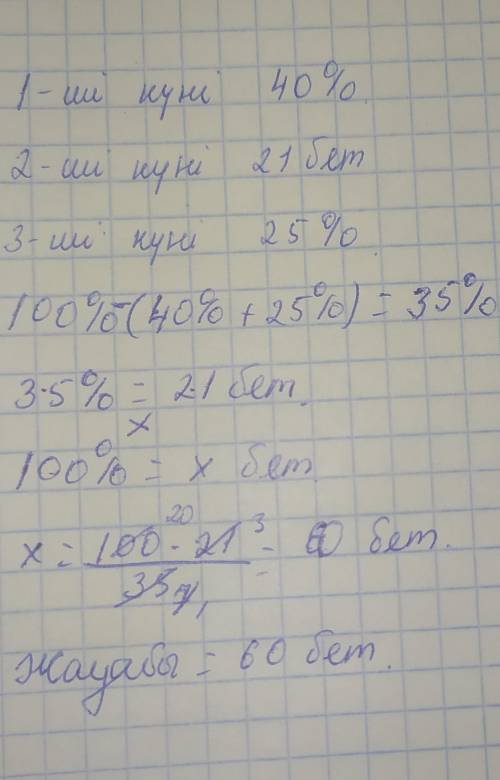 1-ші күні 40%.
2-ші күні 21 бет
3-ші күні 25%.
100%-(40%+25%)=35%
35% = 21 бет.
x
100% = x бет.
x = 100 · 21 / 35 = 60 бет.
20 3
7 1
Жауабы = 60 бет.